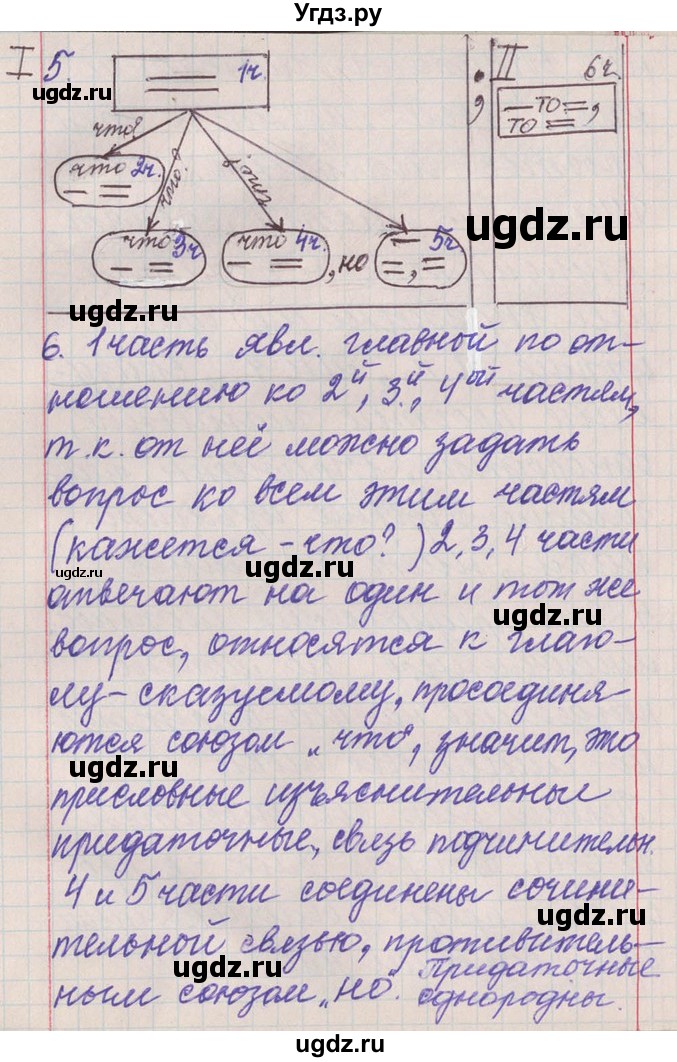 Угдз.ру
I 5. 1ч. ; II 6ч.
ugdz.ru
что? что? что?
— то =,
то =
что 2ч.
ugdz.ru
что 3ч что 4ч., но 5ч
ugdz.ru
ugdz.ru
6. 1 часть явл. главной по от-
ношению ко 2й, 3й, 4ой частям,
ugdz.ru
т.к. от неё можно задать
вопрос ко всем этим частям
ugdz.ru
(кажется - что?) 2, 3, 4 части
ugdz.ru
отвечают на один и тот же
ugdz.ru
вопрос, относятся к глаго-
ugdz.ru
лу-сказуемому, присоединя-
ются союзом „что", значит, это
ugdz.ru
присловные изъяснительные
ugdz.ru
придаточные, связь подчинительн.
4 и 5 части соединены сочини-
ugdz.ru
тельной связью, противитель-
ugdz.ru
ным союзом „но". Придаточные
однородны.
ugdz.ru